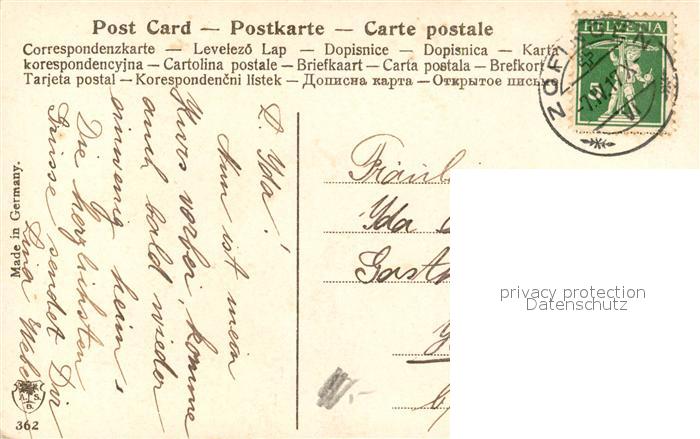 Post Card — Postkarte — Carte postale
Correspondenzkarte — Levelező Lap — Dopisnice — Dopisnica — Karta
korespondencyjna — Cartolina postale — Briefkaart — Carta postala — Brefkort
Tarjeta postal — Korespondenční lístek — Дописна карта — Открытое письм
HELVETIA
ZOFI
Made in Germany.
L. Yda!
Nun ist mein
Kurs vorbei, komme
auch bald wieder
einwenig heim,
Die herzlichsten
Grüsse sendet Dir
Lina Weber
Fräul
Yda
Gasth
privacy protection
Datenschutz
A. S.
B.
362